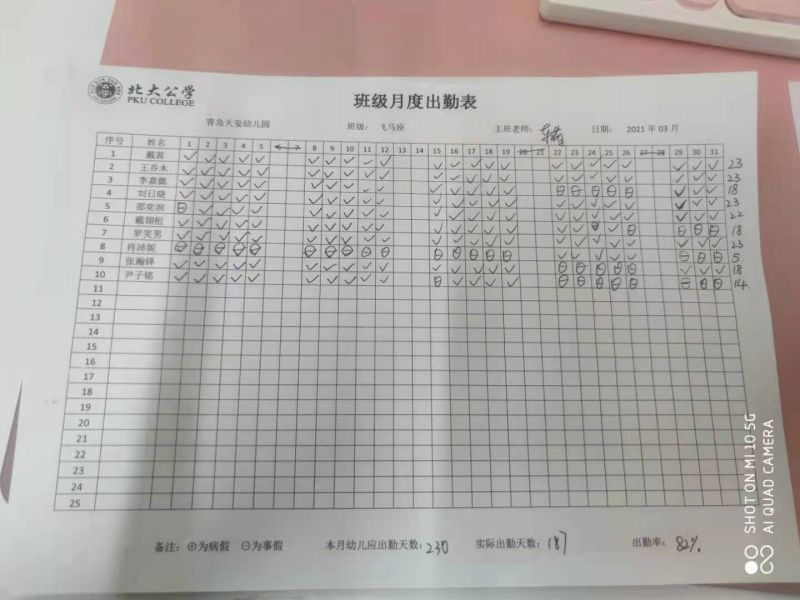 北大公学
PKU COLLEGE
班级月度出勤表
青岛天玺幼儿园 班级: 飞马座 主班老师: 日期: 2021 年 03 月
序号 姓名 1 2 3 4 5 8 9 10 11 12 13 14 15 16 17 18 19 20 21 22 23 24 25 26 27 28 29 30 31
1 戴茜 ✓ ✓ ✓ ✓ ✓ ✓ ✓ ✓ ✓ ✓ ✓ ✓ ✓ ✓ ✓ ✓ ✓ ✓ ✓ ✓ ✓ ✓ ✓ 23
2 王乔木 ✓ ✓ ✓ ✓ ✓ ✓ ✓ ✓ ✓ ✓ ✓ ✓ ✓ ✓ ✓ ✓ ✓ ✓ ✓ ✓ ✓ ✓ ✓ 23
3 李嘉懿 18
4 刘日晓 23
5 邵奕润 22
6 戴翊桓 18
7 罗芙男 23
8 肖沛妮 5
9 张瀚铎 18
10 尹子铭 14
11
12
13
14
15
16
17
18
19
20
21
22
23
24
25
备注: ⊕为病假 ⊖为事假 本月幼儿应出勤天数: 230 实际出勤天数: 187 出勤率: 82%
SHOT ON MI 10 5G
AI QUAD CAMERA